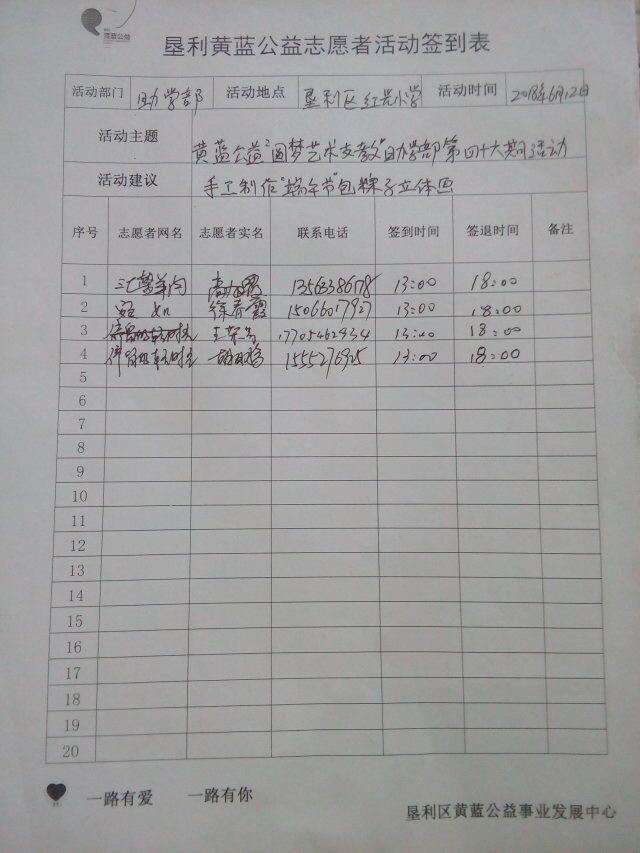 黄蓝公益
垦利黄蓝公益志愿者活动签到表
活动部门 助学部 活动地点 垦利区红光小学 活动时间 2018年6月12日
活动主题 黄蓝公益"圆梦艺术支教"助学部第四十六期活动
活动建议 手工制作"端午节"包粽子立体画
序号 志愿者网名 志愿者实名 联系电话 签到时间 签退时间 备注
1 13:00 18:00
2 宛如 徐春霞 15066017927 13:00 18:00
3 17705462934 13:00 18:00
4 13:00 18:00
5
6
7
8
9
10
11
12
13
14
15
16
17
18
19
20
一路有爱 一路有你
垦利区黄蓝公益事业发展中心